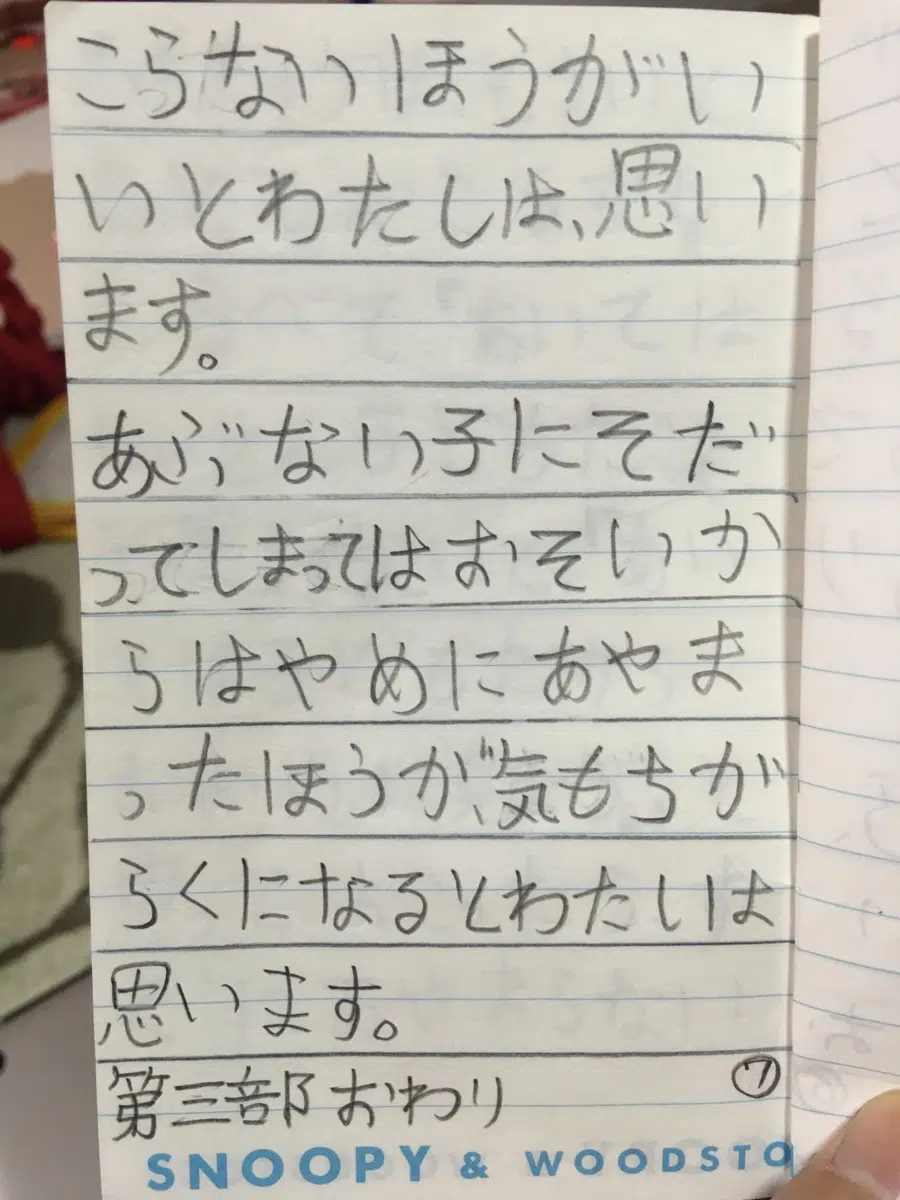 こらないほうがい
いとわたしは、思い
ます。
あぶない子にそだ
ってしまってはおそいか
らはやめにあやま
ったほうが、気もちが
らくになるとわたしは
思います。
第三部おわり ⑦
SNOOPY & WOODSTO